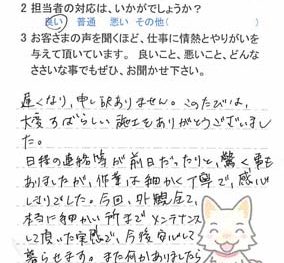 2 担当者の対応は、いかがでしょうか?
良い 普通 悪い その他( )
3 お客さまの声を聞くほど、仕事に情熱とやりがいを
与えて頂いています。 良いこと、悪いこと、どんな
ささいな事でもぜひ、お聞かせ下さい。
遅くなり、申し訳ありません。このたびは、
大変すばらしい施工をありがとうございまし
た。
日程の連絡等が前日だったりと、驚く事も
ありましたが、作業は細かく丁寧で、感心
しきりでした。今回、外観全て、
本当に細かい所までメンテナンス
して頂いた実感で、今後安心して
暮らせます。また何かありましたら